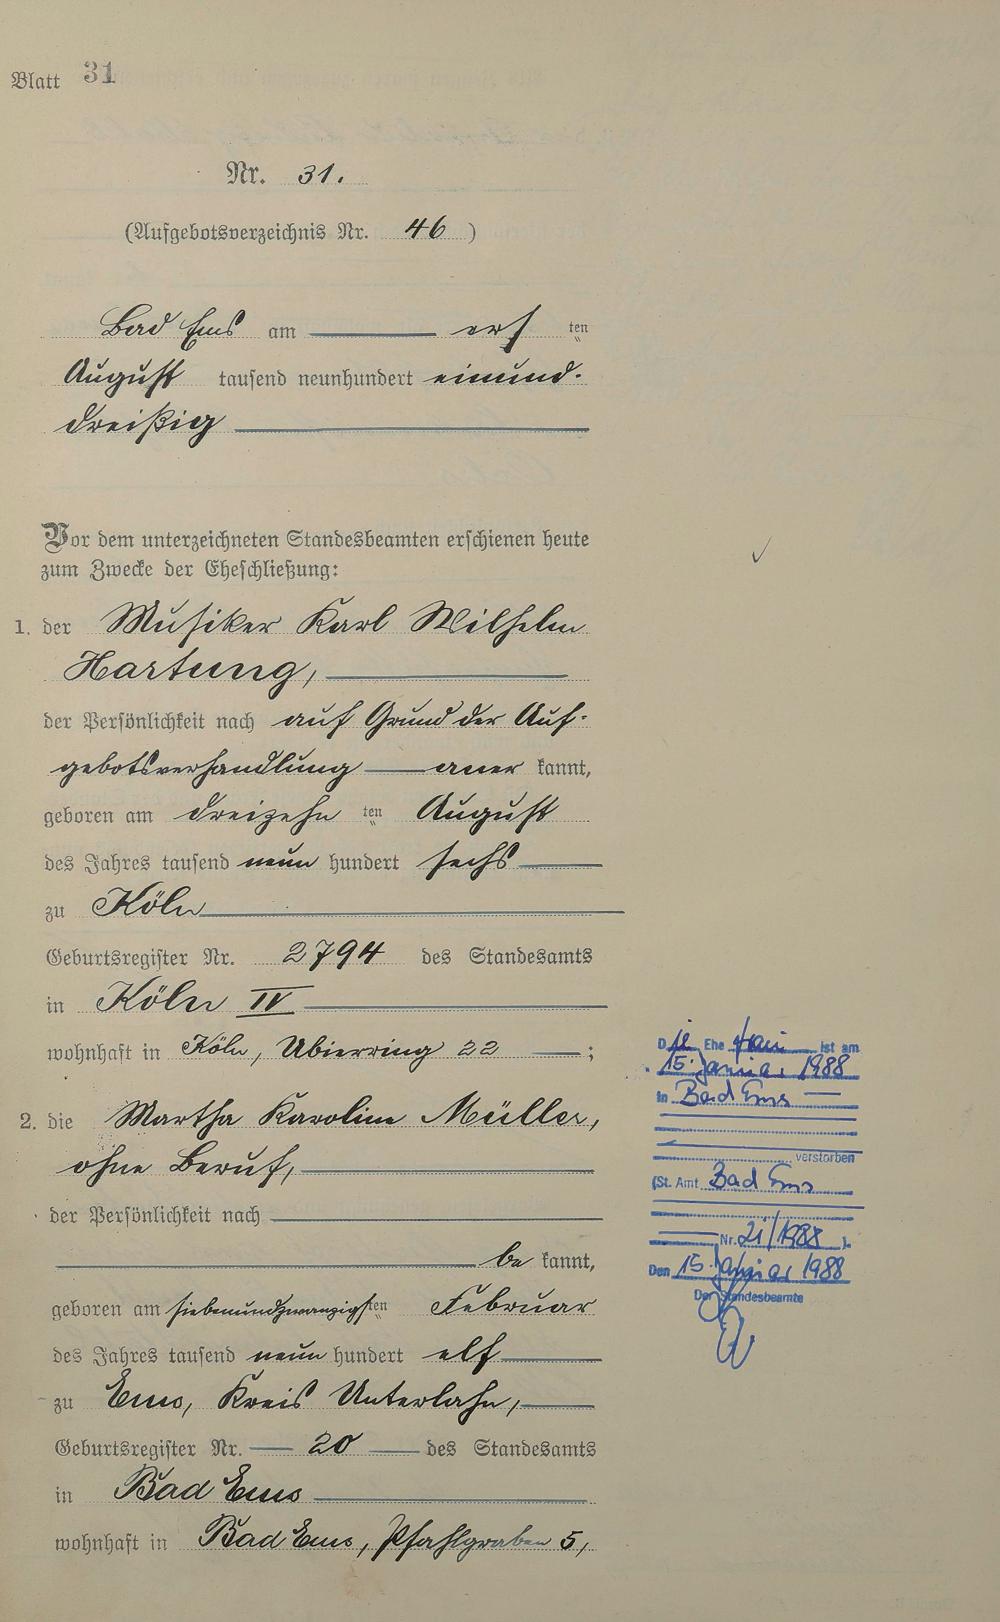 Blatt 31
Nr. 31.
(Aufgebotsverzeichnis Nr. 46)
Bad Ems am erst ten
August tausend neunhundert einund-
dreißig
Vor dem unterzeichneten Standesbeamten erschienen heute
zum Zwecke der Eheschließung:
1. der Musiker Karl Wilhelm
Hartung,
der Persönlichkeit nach auf Grund der Auf-
gebotsverhandlung aner kannt,
geboren am dreizehn ten August
des Jahres tausend neun hundert sechs
zu Köln
Geburtsregister Nr. 2794 des Standesamts
in Köln IV
wohnhaft in Köln, Ubierring 22 ;
2. die Martha Karoline Müller,
ohne Beruf,
der Persönlichkeit nach
be kannt,
geboren am siebenundzwanzigsten Februar
des Jahres tausend neun hundert elf
zu Ems, Kreis Unterlahn,
Geburtsregister Nr. 20 des Standesamts
in Bad Ems
wohnhaft in Bad Ems, Pfahlgraben 5,
Die Ehefrau ist am
15. Januar 1988
in Bad Ems
verstorben
(St. Amt Bad Ems
Nr. 21/1988 ).
Den 15. Januar 1988
Der Standesbeamte